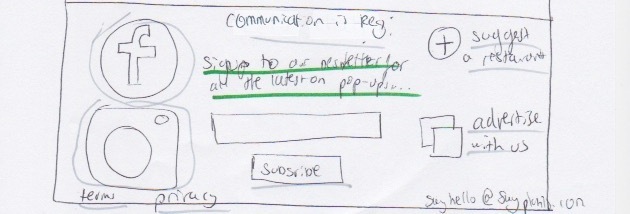 Communication is key:
Signup to our newsletter for
all the latest on pop-ups...
suggest
a restaurant
advertise
with us
Subscribe
terms privacy
sayhello@